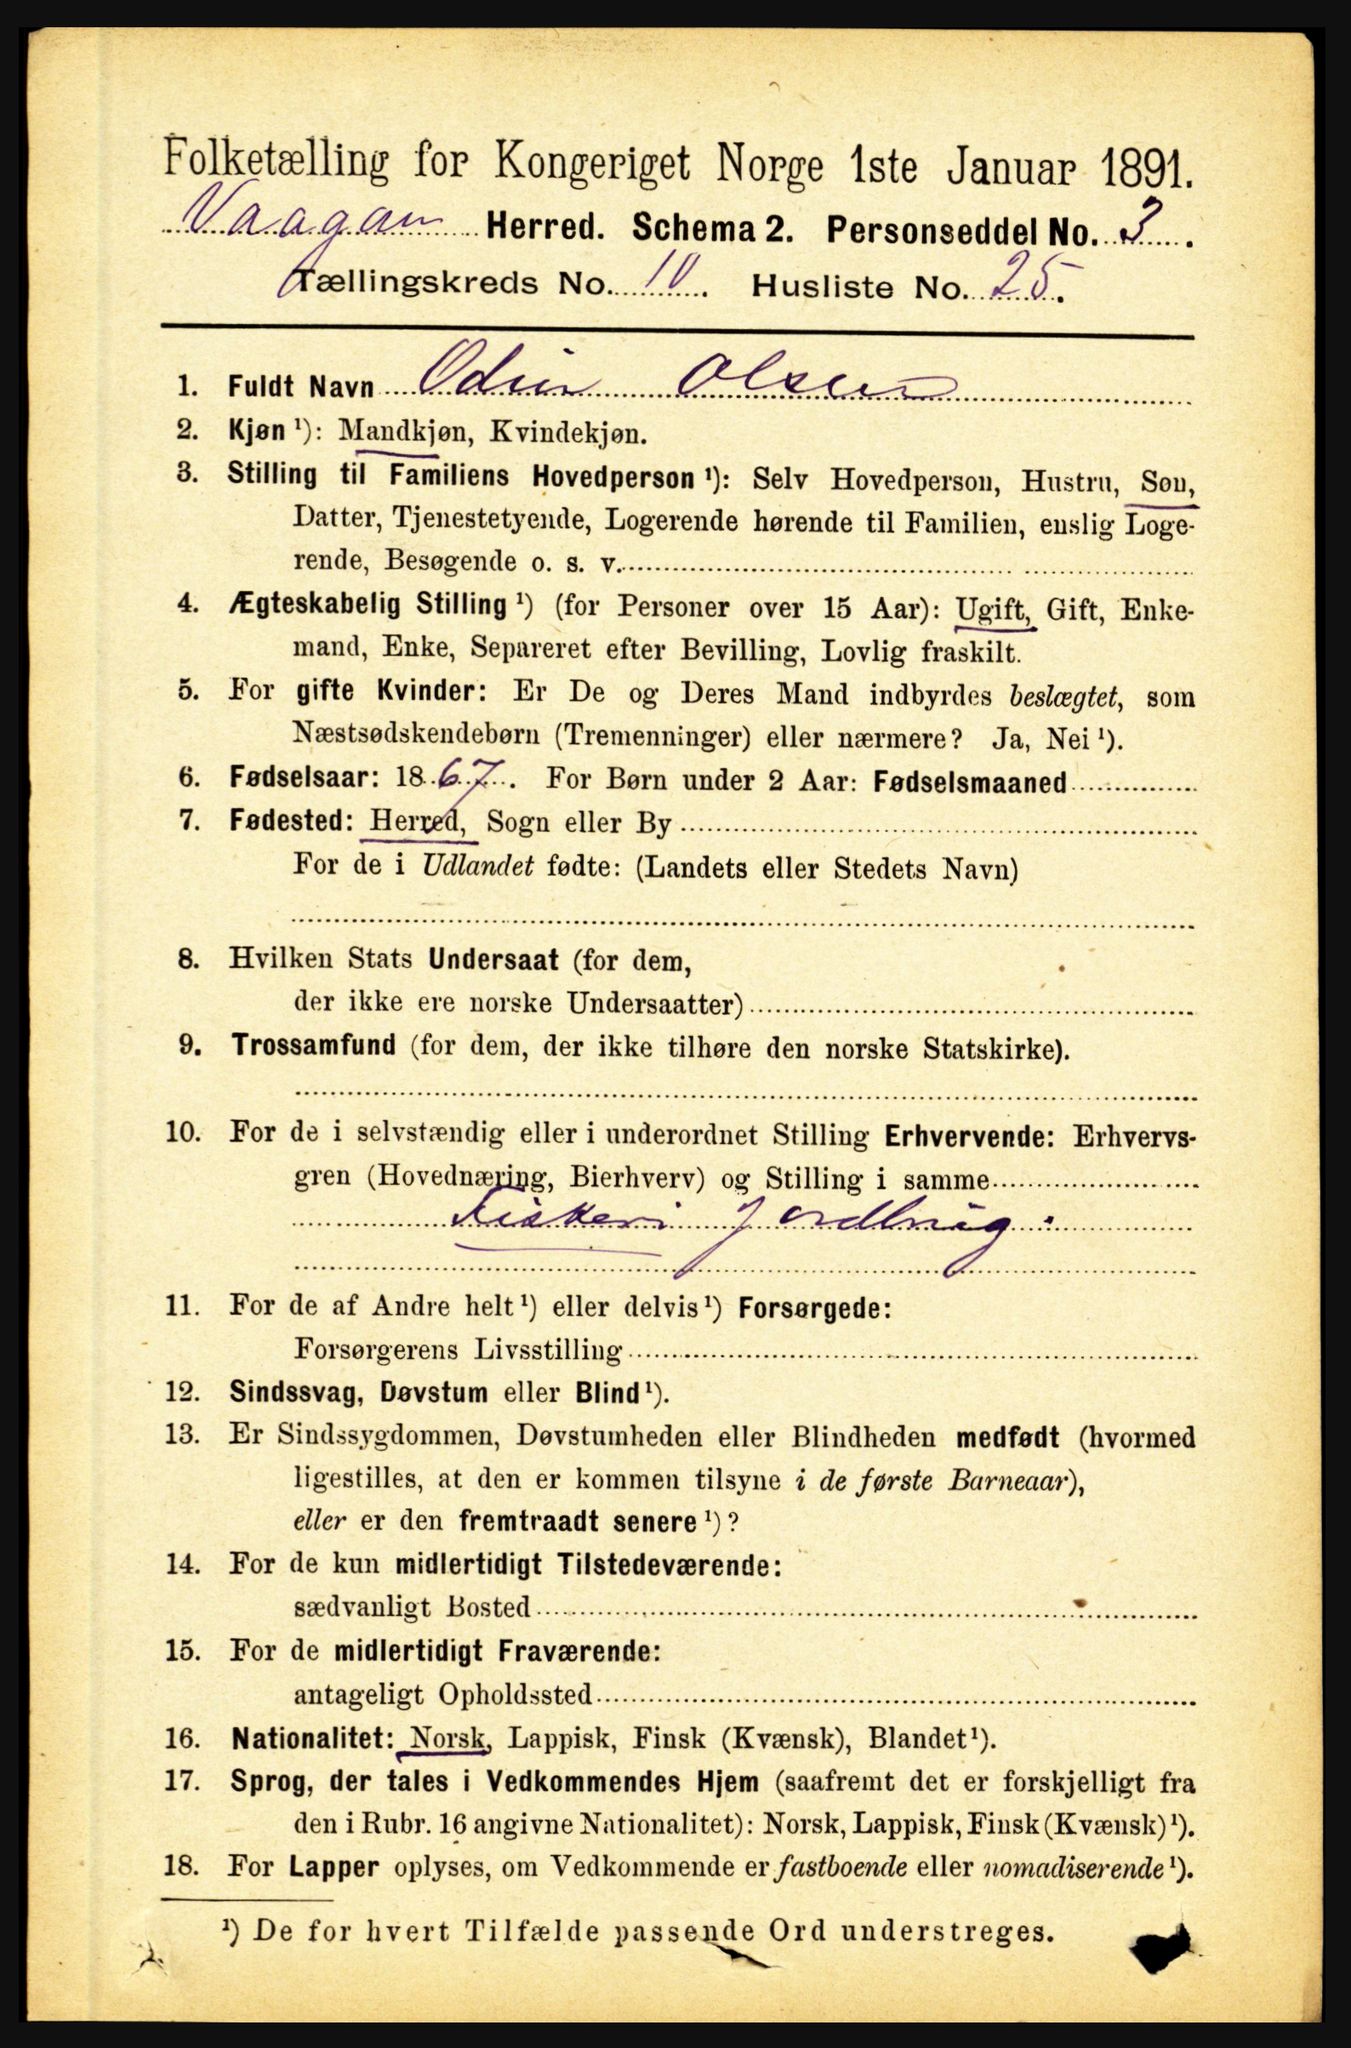 Folketælling for Kongeriget Norge 1ste Januar 1891.
Vaagan Herred. Schema 2. Personseddel No. 3.
Tællingskreds No. 10. Husliste No. 25.
1. Fuldt Navn Odin Olsen
2. Kjøn ¹): Mandkjøn, Kvindekjøn.
3. Stilling til Familiens Hovedperson ¹): Selv Hovedperson, Hustru, Søn,
Datter, Tjenestetyende, Logerende hørende til Familien, enslig Loge-
rende, Besøgende o. s. v.
4. Ægteskabelig Stilling ¹) (for Personer over 15 Aar): Ugift, Gift, Enke-
mand, Enke, Separeret efter Bevilling, Lovlig fraskilt.
5. For gifte Kvinder: Er De og Deres Mand indbyrdes beslægtet, som
Næstsødskendebørn (Tremenninger) eller nærmere? Ja, Nei ¹).
6. Fødselsaar: 1867. For Børn under 2 Aar: Fødselsmaaned
7. Fødested: Herred, Sogn eller By
For de i Udlandet fødte: (Landets eller Stedets Navn)
8. Hvilken Stats Undersaat (for dem,
der ikke ere norske Undersaatter)
9. Trossamfund (for dem, der ikke tilhøre den norske Statskirke).
10. For de i selvstændig eller i underordnet Stilling Erhvervende: Erhvervs-
gren (Hovednæring, Bierhverv) og Stilling i samme
Fiskeri Jordbrug.
11. For de af Andre helt ¹) eller delvis ¹) Forsørgede:
Forsørgerens Livsstilling
12. Sindssvag, Døvstum eller Blind ¹).
13. Er Sindssygdommen, Døvstumheden eller Blindheden medfødt (hvormed
ligestilles, at den er kommen tilsyne i de første Barneaar),
eller er den fremtraadt senere ¹)?
14. For de kun midlertidigt Tilstedeværende:
sædvanligt Bosted
15. For de midlertidigt Fraværende:
antageligt Opholdssted
16. Nationalitet: Norsk, Lappisk, Finsk (Kvænsk), Blandet ¹).
17. Sprog, der tales i Vedkommendes Hjem (saafremt det er forskjelligt fra
den i Rubr. 16 angivne Nationalitet): Norsk, Lappisk, Finsk (Kvænsk) ¹).
18. For Lapper oplyses, om Vedkommende er fastboende eller nomadiserende ¹).
¹) De for hvert Tilfælde passende Ord understreges.